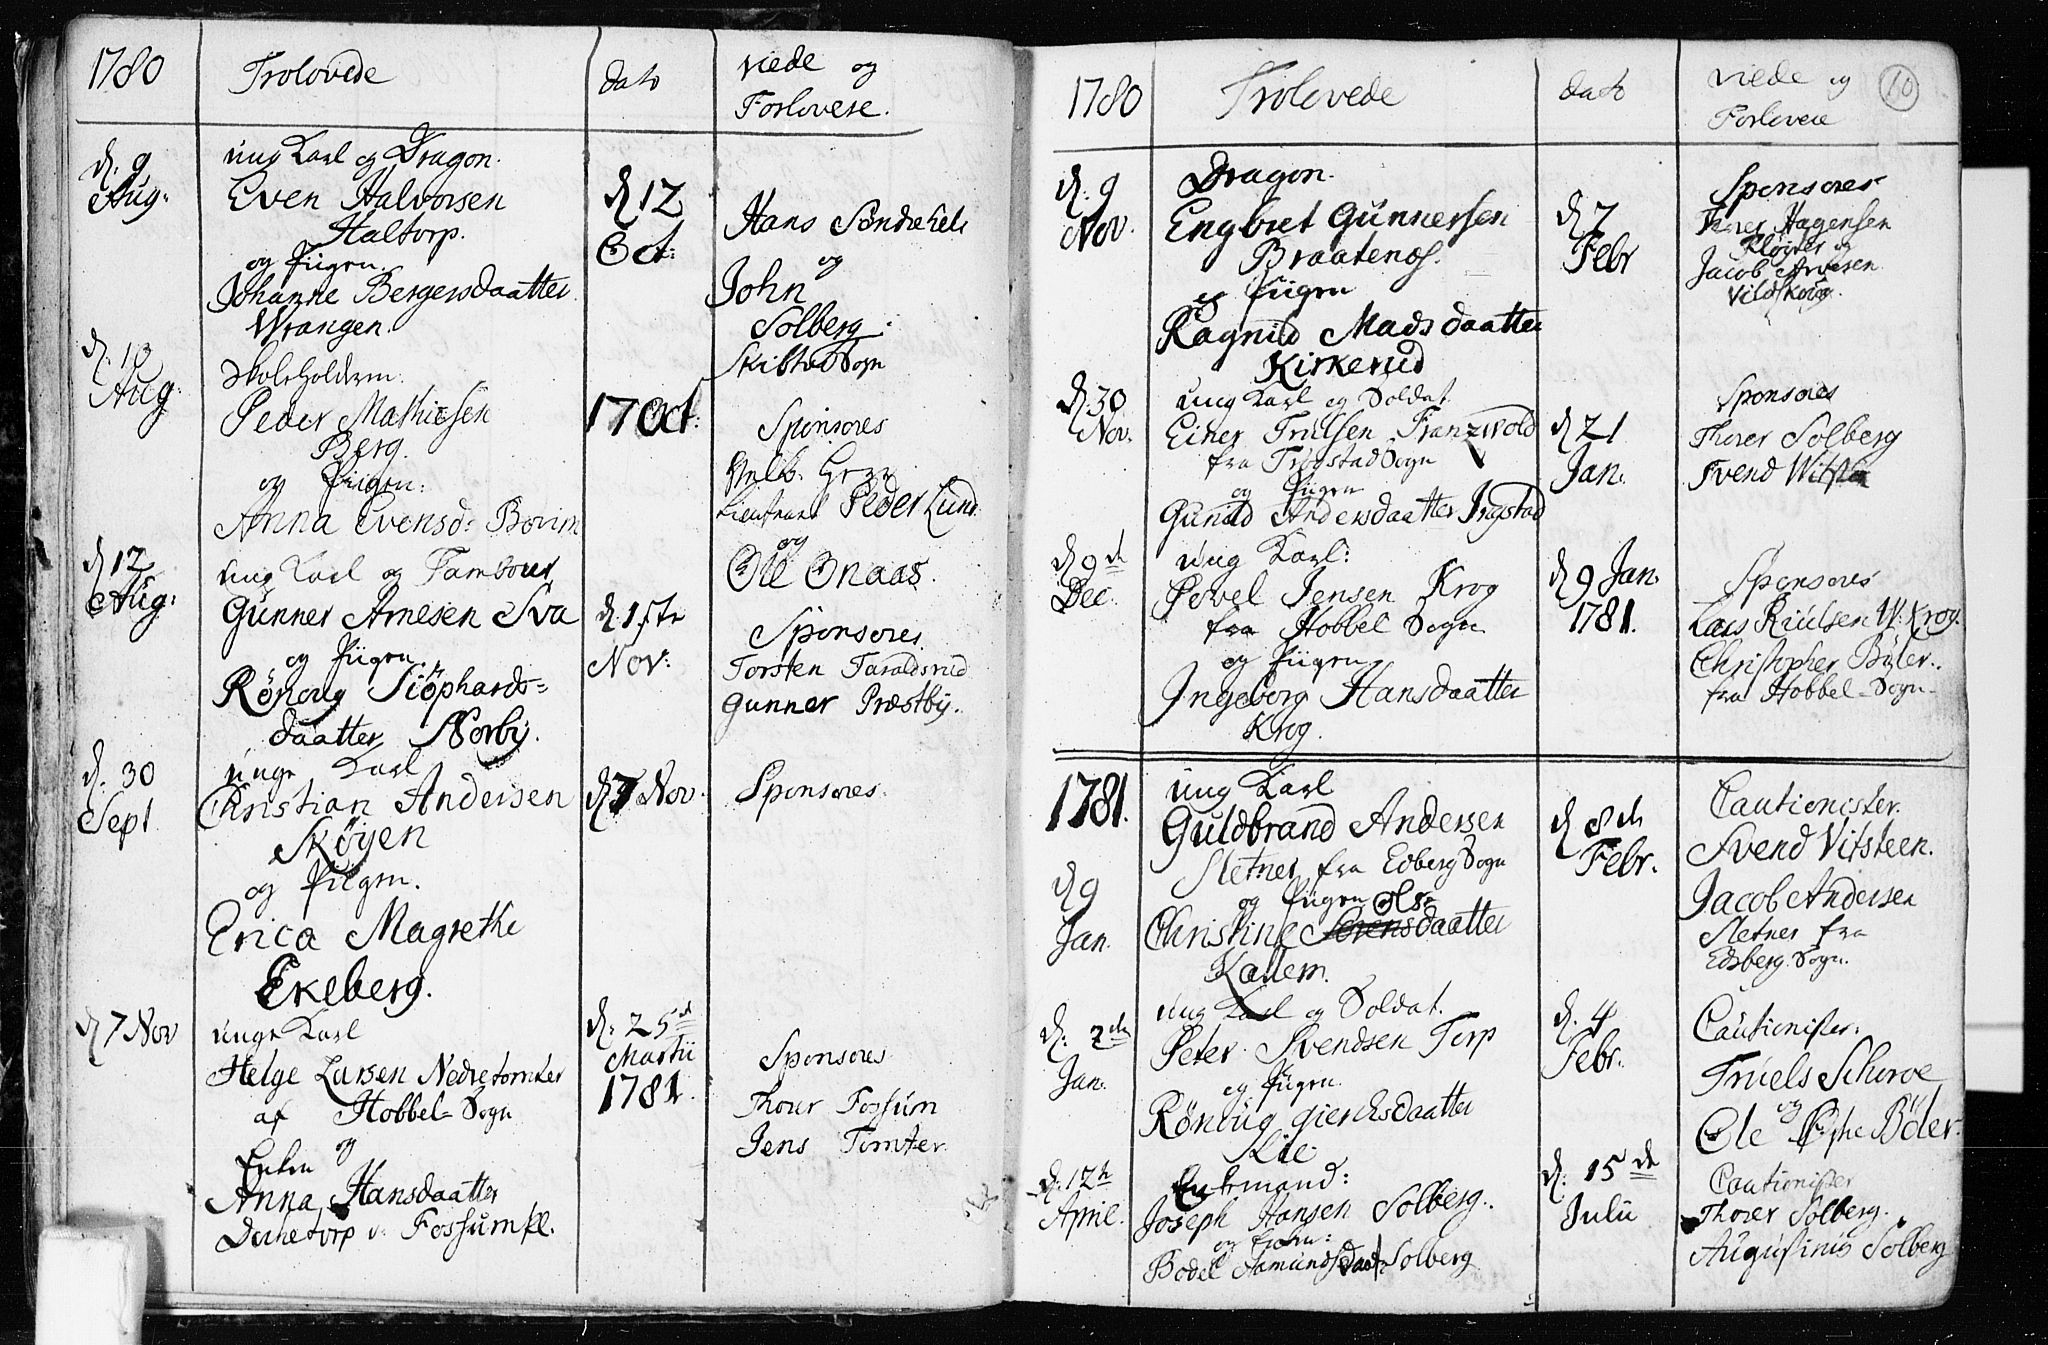 1780
Trolovede
dato
viede og
Forlovere.
d. 9
Aug:
ung Karl og Dragon.
Even Halvorsen
Haltorp.
og Piigen
Johanne Bergersdaatter
Wrangen.
d 12
Oct:
Hans Söndrehels
og
John
Solberg.
Skibtved Sogn
d. 10
Aug
Skoleholderen.
Peder Mathiesen
Berg.
og Piigen:
Anna Evensd: Bovim
17 Oct:
Sponsores
Lieutnant Peder Lund
og
Ole Onaas.
d 12
Aug:
ung Karl og Tambour
Gunner Arnesen Sva
og Piigen.
Rönoug Siöphards-
daatter Norby.
d. 1ste
Nov:
Sponsores.
Torsten Taraldsrud
Gunner Præstby.
d. 30
Sept
unge Karl
Christian Andersen
Skøyen
og Piigen.
Erica Magrethe
Ekeberg.
d 7 Nov.
Sponsores.
d 7 Nov
unge Karl
Helge Larsen Nedretomter
af Hobbel-Sogn
og
Enken
Anna Hansdaatter
Fossum
d. 25d
Martii
1781.
Sponsores
Thorer Fossum
Jens Tomter
1780
Trolovede
dato
viede og
Forlovere
10
d. 9
Nov.
Dragon.
Engbret Gunnersen
Braatenes.
og Piigen
Ragnild Madsdaatter
Kirkerud
d 7
Febr
Sponsores
Hagensen
Kløyter og
Jacob Arvesen
Vildskoug.
d. 30
Nov.
ung Karl og Soldat
Einer Trulsen Franzvold
fra Trygstad Sogn
og Piigen
Gunild Andersdaatter Irgstad
d 21
Jan.
Sponsores
Thorer Solberg
Svend Witsten
d 9de
Dec.
ung Karl:
Povel Jensen Krog
fra Hobbel Sogn
og Piigen
Ingeborg Hansdaatter
Krog.
d 9 Jan.
1781.
Sponsores
Lars Riulsen W: Krog.
Christopher Bøler.
fra Hobbel-Sogn
1781.
d 9
Jan.
ung Karl
Guldbrand Andersen
Sletner fra Edberg Sogn
og Piigen Ols-
Christine Sörensdaatter
Kallem.
d 8de
Febr.
Cautionister.
Svend Vitsteen.
Jacob Andersen
Sletner fra
Edsberg. Sogn.
d. 2den
Jan.
ung Karl og Soldat.
Peter Svendsen Torp
og Piigen
Rönnug Gierdsdaatter
Lie
d. 4
Febr.
Cautionister.
Truels Schiroe
og
Ole Böler.
d. 12te
April.
Enkemand:
Joseph Hansen Solberg.
og Enken:
Bodel Amundsdaat: Solberg
d. 15de
Julii
Cautionister
Thorer Solberg.
Augustinus Solberg